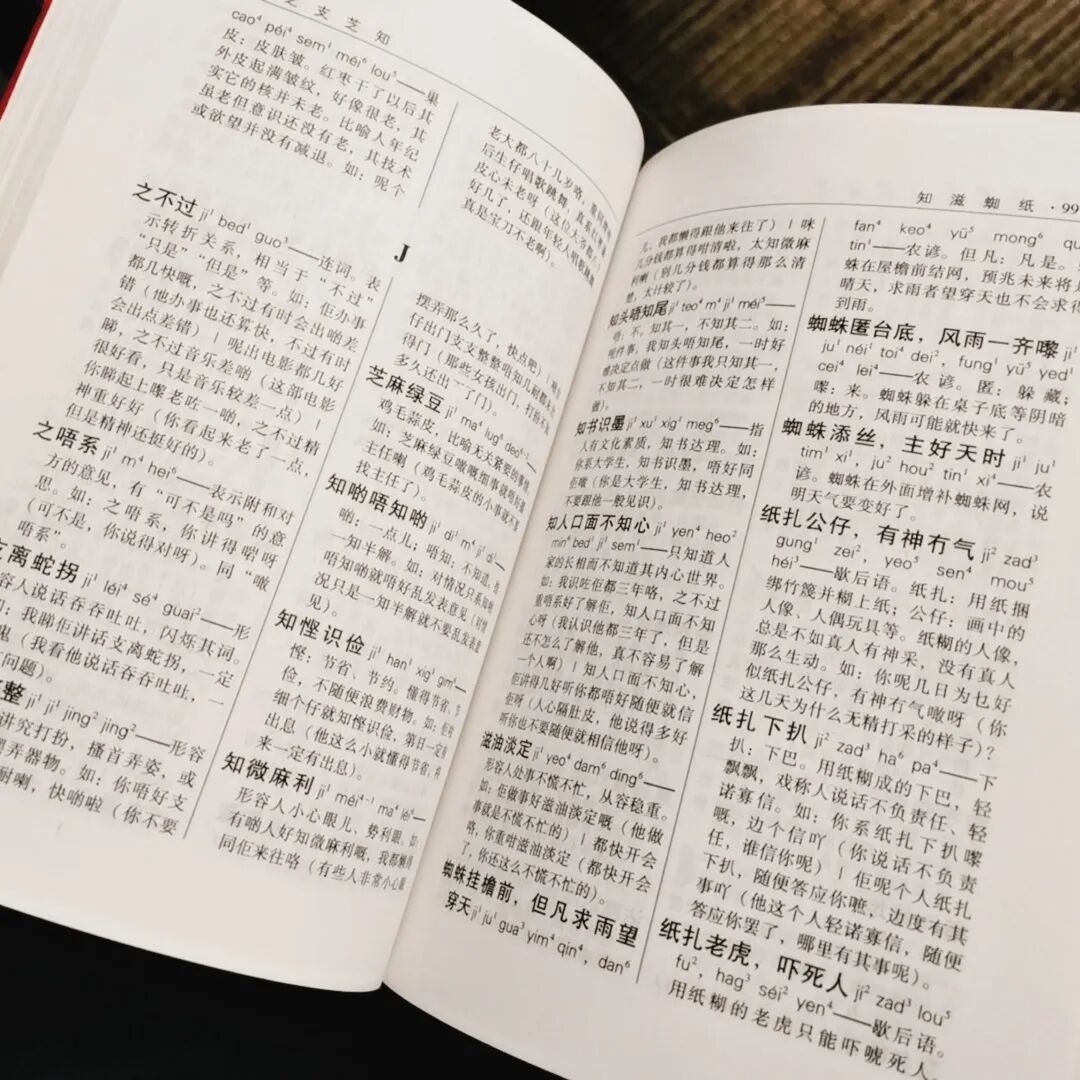 之 支 芝 知
cao⁴ péi⁴ sem¹ méi⁶ lou⁵——果
皮：皮肤皱。红枣干了以后其
外皮起满皱纹，好像很老，其
实它的核并未老。比喻人年纪
虽老但意识还没有老，其技术
或欲望并没有减退。如：呢个
老大都八十几岁咯，重同啲
后生仔唱歌跳舞，真系红枣
皮心未老呀（这位大爷都八十
好几了，还跟年轻人唱歌跳舞
真是宝刀不老啊）。
J
之不过 ji¹ bed¹ guo³——连词。表
示转折关系，相当于“不过”
“只是”“但是”等。如：佢办事
都几快嘅，之不过有时会出啲差
错（他办事也还算快，不过有时
会出点差错）｜呢出电影都几好
睇，之不过音乐差啲（这部电影
很好看，只是音乐较差一点）｜
你睇起上嚟老咗一啲，之不过精
神重好好（你看起来老了一点，
但是精神还挺好的）。
之唔系 ji¹ m⁴ hei⁶——表示附和对
方的意见，有“可不是吗”的意
思。如：之唔系，你讲得啱呀
（可不是，你说得对呀）。同“噉
唔系”。
支离蛇拐 ji¹ léi⁴ sé⁴ guai²——形
容人说话吞吞吐吐，闪烁其词。
如：我睇佢讲话支离蛇拐，一定
鬼（我看他说话吞吞吐吐，一
有问题）。
整 ji¹ ji¹ jing² jing²——形容
讲究打扮，播首弄姿，或
摆弄器物。如：你唔好支
耐喇，快啲啦（你不要
摆弄那么久了，快点吧）｜
仔出门支支整整唔知几耐都未
得门（那些女孩出门，打扮不知
多久还出了门）。
芝麻绿豆 ji¹ ma⁴ lug⁶ deo⁴⁻²——
鸡毛蒜皮，比喻无关紧要的事情
如：芝麻绿豆嘅细事就唔好
主任喇（鸡毛蒜皮的小事就不要
找主任了）。
知啲唔知啲 ji¹ di¹ m⁴ ji¹ di¹——
啲：一点儿；唔知：不知道。指
一知半解。如：对情况只系知啲
唔知啲就唔好乱发表意见（对情
况只是一知半解就不要乱发表意
见）。
知悭识俭 ji¹ han¹ xig¹ gim⁶——
悭：节省、节约。懂得节省、节
俭，不随便浪费财物。如：佢咁
细个仔就知悭识俭，第日一定有
出息（他这么小就懂得节省，将
来一定有出息）。
知微麻利 ji¹ méi⁴⁻¹ ma⁴ léi⁶——
形容人小心眼儿、势利眼。如：
有啲人好知微麻利嘅，我都懒得
同佢来往咯（有些人非常小心眼
知 滋 蜘 纸 · 99
儿，我都懒得跟他来往了）｜咪
几分钱都算得咁清啦，太知微麻
利喇（别几分钱都算得那么清
楚，太计较了）。
知头唔知尾 ji¹ teo⁴ m⁴ ji¹ méi⁵——
唔：不。知其一，不知其二。如：
呢件事，我知头唔知尾，一时好
难决定点做（这件事我只知其一，
不知其二，一时很难决定怎样
做）。
知书识墨 ji¹ xu¹ xig¹ meg⁶——指
人有文化素质，知书达理。如：
你系大学生，知书识墨，唔好同
佢嗷（你是大学生，知书达理，
不要跟他一般见识）。
知人口面不知心 ji¹ yen⁴ heo²
min⁶ bed¹ ji¹ sem¹——只知道人
家的长相而不知道其内心世界。
如：我识咗佢都三年咯，之不过
重唔系好了解佢，知人口面不知
心呀（我认识他都三年了，但是
还不怎么了解他，真不容易了解
一个人啊）｜知人口面不知心，
佢讲得几好听你都唔好随便就信
佢呀（人心隔肚皮，他说得多好
听你也不要随便就相信他呀）。
滋油淡定 ji¹ yeo⁴ dam⁶ ding⁶——
形容人处事不慌不忙，从容稳重。
如：佢做事好滋油淡定嘅（他做
事就是不慌不忙的）｜都快开会
咯，你重咁滋油淡定（都快开会
了，你还这么不慌不忙的）。
蜘蛛挂檐前，但凡求雨望
穿天 ji¹ ju¹ gua³ yim⁴ qin⁴，dan⁶
fan⁴ keo⁴ yü⁵ mong⁶
tin¹——农谚。但凡：凡是。
蛛在屋檐前结网，预兆未来将是
晴天，求雨者望穿天也不会求得
到雨。
蜘蛛匿台底，风雨一齐嚟 ji¹
ju¹ néi¹ toi⁴ dei²，fung¹ yü⁵ yed¹
cei⁴ lei⁴——农谚。匿：躲藏；
嚟：来。蜘蛛躲在桌子底等阴暗
的地方，风雨可能就快来了。
蜘蛛添丝，主好天时 ji¹ ju¹
tim¹ xi¹，ju² hou² tin¹ xi⁴——农
谚。蜘蛛在外面增补蜘蛛网，说
明天气要变好了。
纸扎公仔，有神冇气 ji² zad³
gung¹ zei²，yeo⁵ sen⁴ mou⁵
héi³——歇后语。纸扎：用纸捆
绑竹篾并糊上纸；公仔：画中的
人像、人偶玩具等。纸糊的人像，
总是不如真人有神采，没有真人
那么生动。如：你呢几日为乜好
似纸扎公仔，有神冇气噉呀（你
这几天为什么无精打采的样子）？
纸扎下扒 ji² zad³ ha⁶ pa⁴——下
扒：下巴。用纸糊成的下巴，轻
飘飘，戏称人说话不负责任、轻
诺寡信。如：你系纸扎下扒嚟
嘅，边个信吖（你说话不负责
任，谁信你呢）｜佢呢个人纸扎
下扒，随便答应你嗻，边度有其
事吖（他这个人轻诺寡信，随便
答应你罢了，哪里有其事呢）。
纸扎老虎，吓死人 ji² zad³ lou⁵
fu²，hag³ séi² yen⁴——歇后语。
用纸糊的老虎只能吓唬死人，